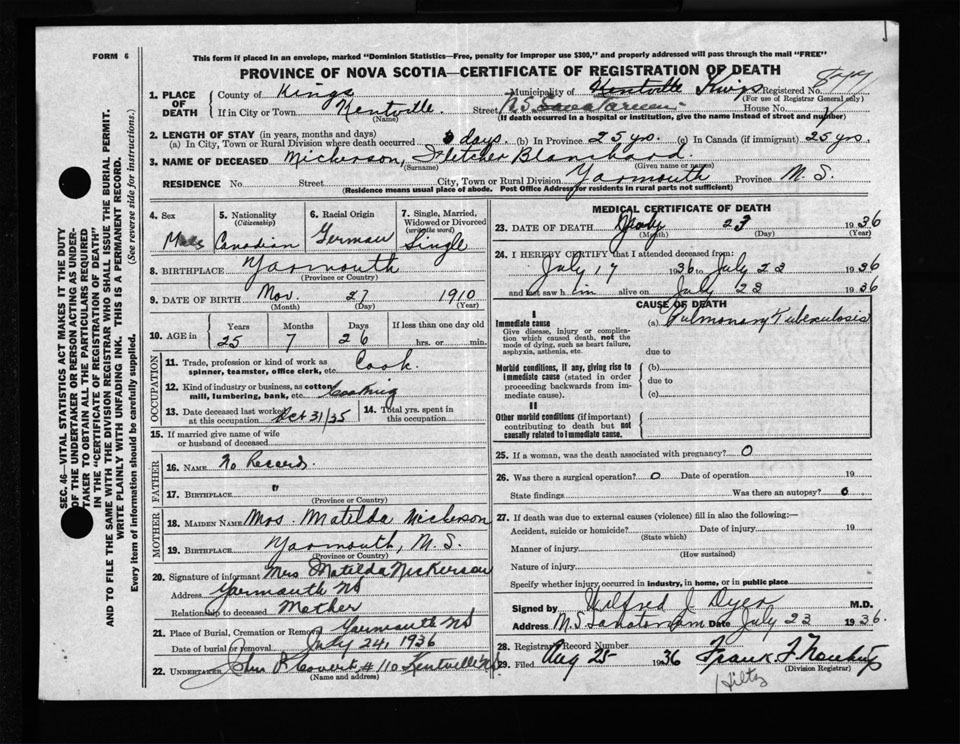 FORM 6
This form if placed in an envelope, marked "Dominion Statistics—Free, penalty for improper use $300," and properly addressed will pass through the mail "FREE"
PROVINCE OF NOVA SCOTIA—CERTIFICATE OF REGISTRATION OF DEATH
SEC. 46—VITAL STATISTICS ACT MAKES IT THE DUTY
OF THE UNDERTAKER OR PERSON ACTING AS UNDER-
TAKER TO OBTAIN ALL THE PARTICULARS REQUIRED
IN THE "CERTIFICATE OF REGISTRATION OF DEATH"
AND TO FILE THE SAME WITH THE DIVISION REGISTRAR WHO SHALL ISSUE THE BURIAL PERMIT.
WRITE PLAINLY WITH UNFADING INK. THIS IS A PERMANENT RECORD.
Every item of information should be carefully supplied. (See reverse side for instructions.)
1. PLACE OF DEATH
County of Kings Municipality of Kentville Kings Registered No.
(For use of Registrar General only)
If in City or Town Kentville Street N.S. House No.
(Name) (If death occurred in a hospital or institution, give the name instead of street and number)
2. LENGTH OF STAY (in years, months and days)
(a) In City, Town or Rural Division where death occurred 6 days. (b) In Province 25 yrs. (c) In Canada (if immigrant) 25 yrs.
3. NAME OF DECEASED Nickerson, Fletcher Blanchard
(Surname) (Given name or names)
RESIDENCE No. Street City, Town or Rural Division Yarmouth Province N. S.
(Residence means usual place of abode. Post Office Address for residents in rural parts not sufficient)
4. Sex Male
5. Nationality (Citizenship) Canadian
6. Racial Origin German
7. Single, Married, Widowed or Divorced (write the word) Single
8. BIRTHPLACE Yarmouth
(Province or Country)
9. DATE OF BIRTH Nov. 27 1910
(Month) (Day) (Year)
10. AGE in Years Months Days If less than one day old
25 7 26 hrs. or min.
OCCUPATION
11. Trade, profession or kind of work as spinner, teamster, office clerk, etc. Cook
12. Kind of industry or business, as cotton mill, lumbering, bank, etc. Cooking
13. Date deceased last worked at this occupation Oct 31/35
14. Total yrs. spent in this occupation
15. If married give name of wife or husband of deceased
FATHER
16. NAME No Record.
17. BIRTHPLACE "
(Province or Country)
MOTHER
18. MAIDEN NAME Mrs. Matilda Nickerson
19. BIRTHPLACE Yarmouth, N. S.
(Province or Country)
20. Signature of informant Mrs Matilda Nickerson
Address Yarmouth NS
Relationship to deceased Mother
21. Place of Burial, Cremation or Removal Yarmouth NS
Date of burial or removal July 24, 1936
22. UNDERTAKER John R Covert #110 Kentville NS
(Name and address)
MEDICAL CERTIFICATE OF DEATH
23. DATE OF DEATH July 23 1936
(Month) (Day) (Year)
24. I HEREBY CERTIFY that I attended deceased from:
July 17 1936 to July 23 1936
and last saw h im alive on July 23 1936
CAUSE OF DEATH
I
Immediate cause (a) Pulmonary Tuberculosis
Give disease, injury or complication which caused death, not the mode of dying, such as heart failure, asphyxia, asthenia, etc. due to
Morbid conditions, if any, giving rise to immediate cause (stated in order proceeding backwards from immediate cause). (b)
due to
(c)
II
Other morbid conditions (if important) contributing to death but not causally related to immediate cause.
25. If a woman, was the death associated with pregnancy? 0
26. Was there a surgical operation? 0 Date of operation 19
State findings Was there an autopsy? 0
27. If death was due to external causes (violence) fill in also the following:—
Accident, suicide or homicide? Date of injury 19
(State which)
Manner of injury
(How sustained)
Nature of injury
Specify whether injury occurred in industry, in home, or in public place
Signed by Hilfred J Dyer M.D.
Address N.S. Sanatorium Date July 23 1936.
28. Registrar's Record Number
29. Filed Aug 25 1936 Frank F
(Division Registrar)